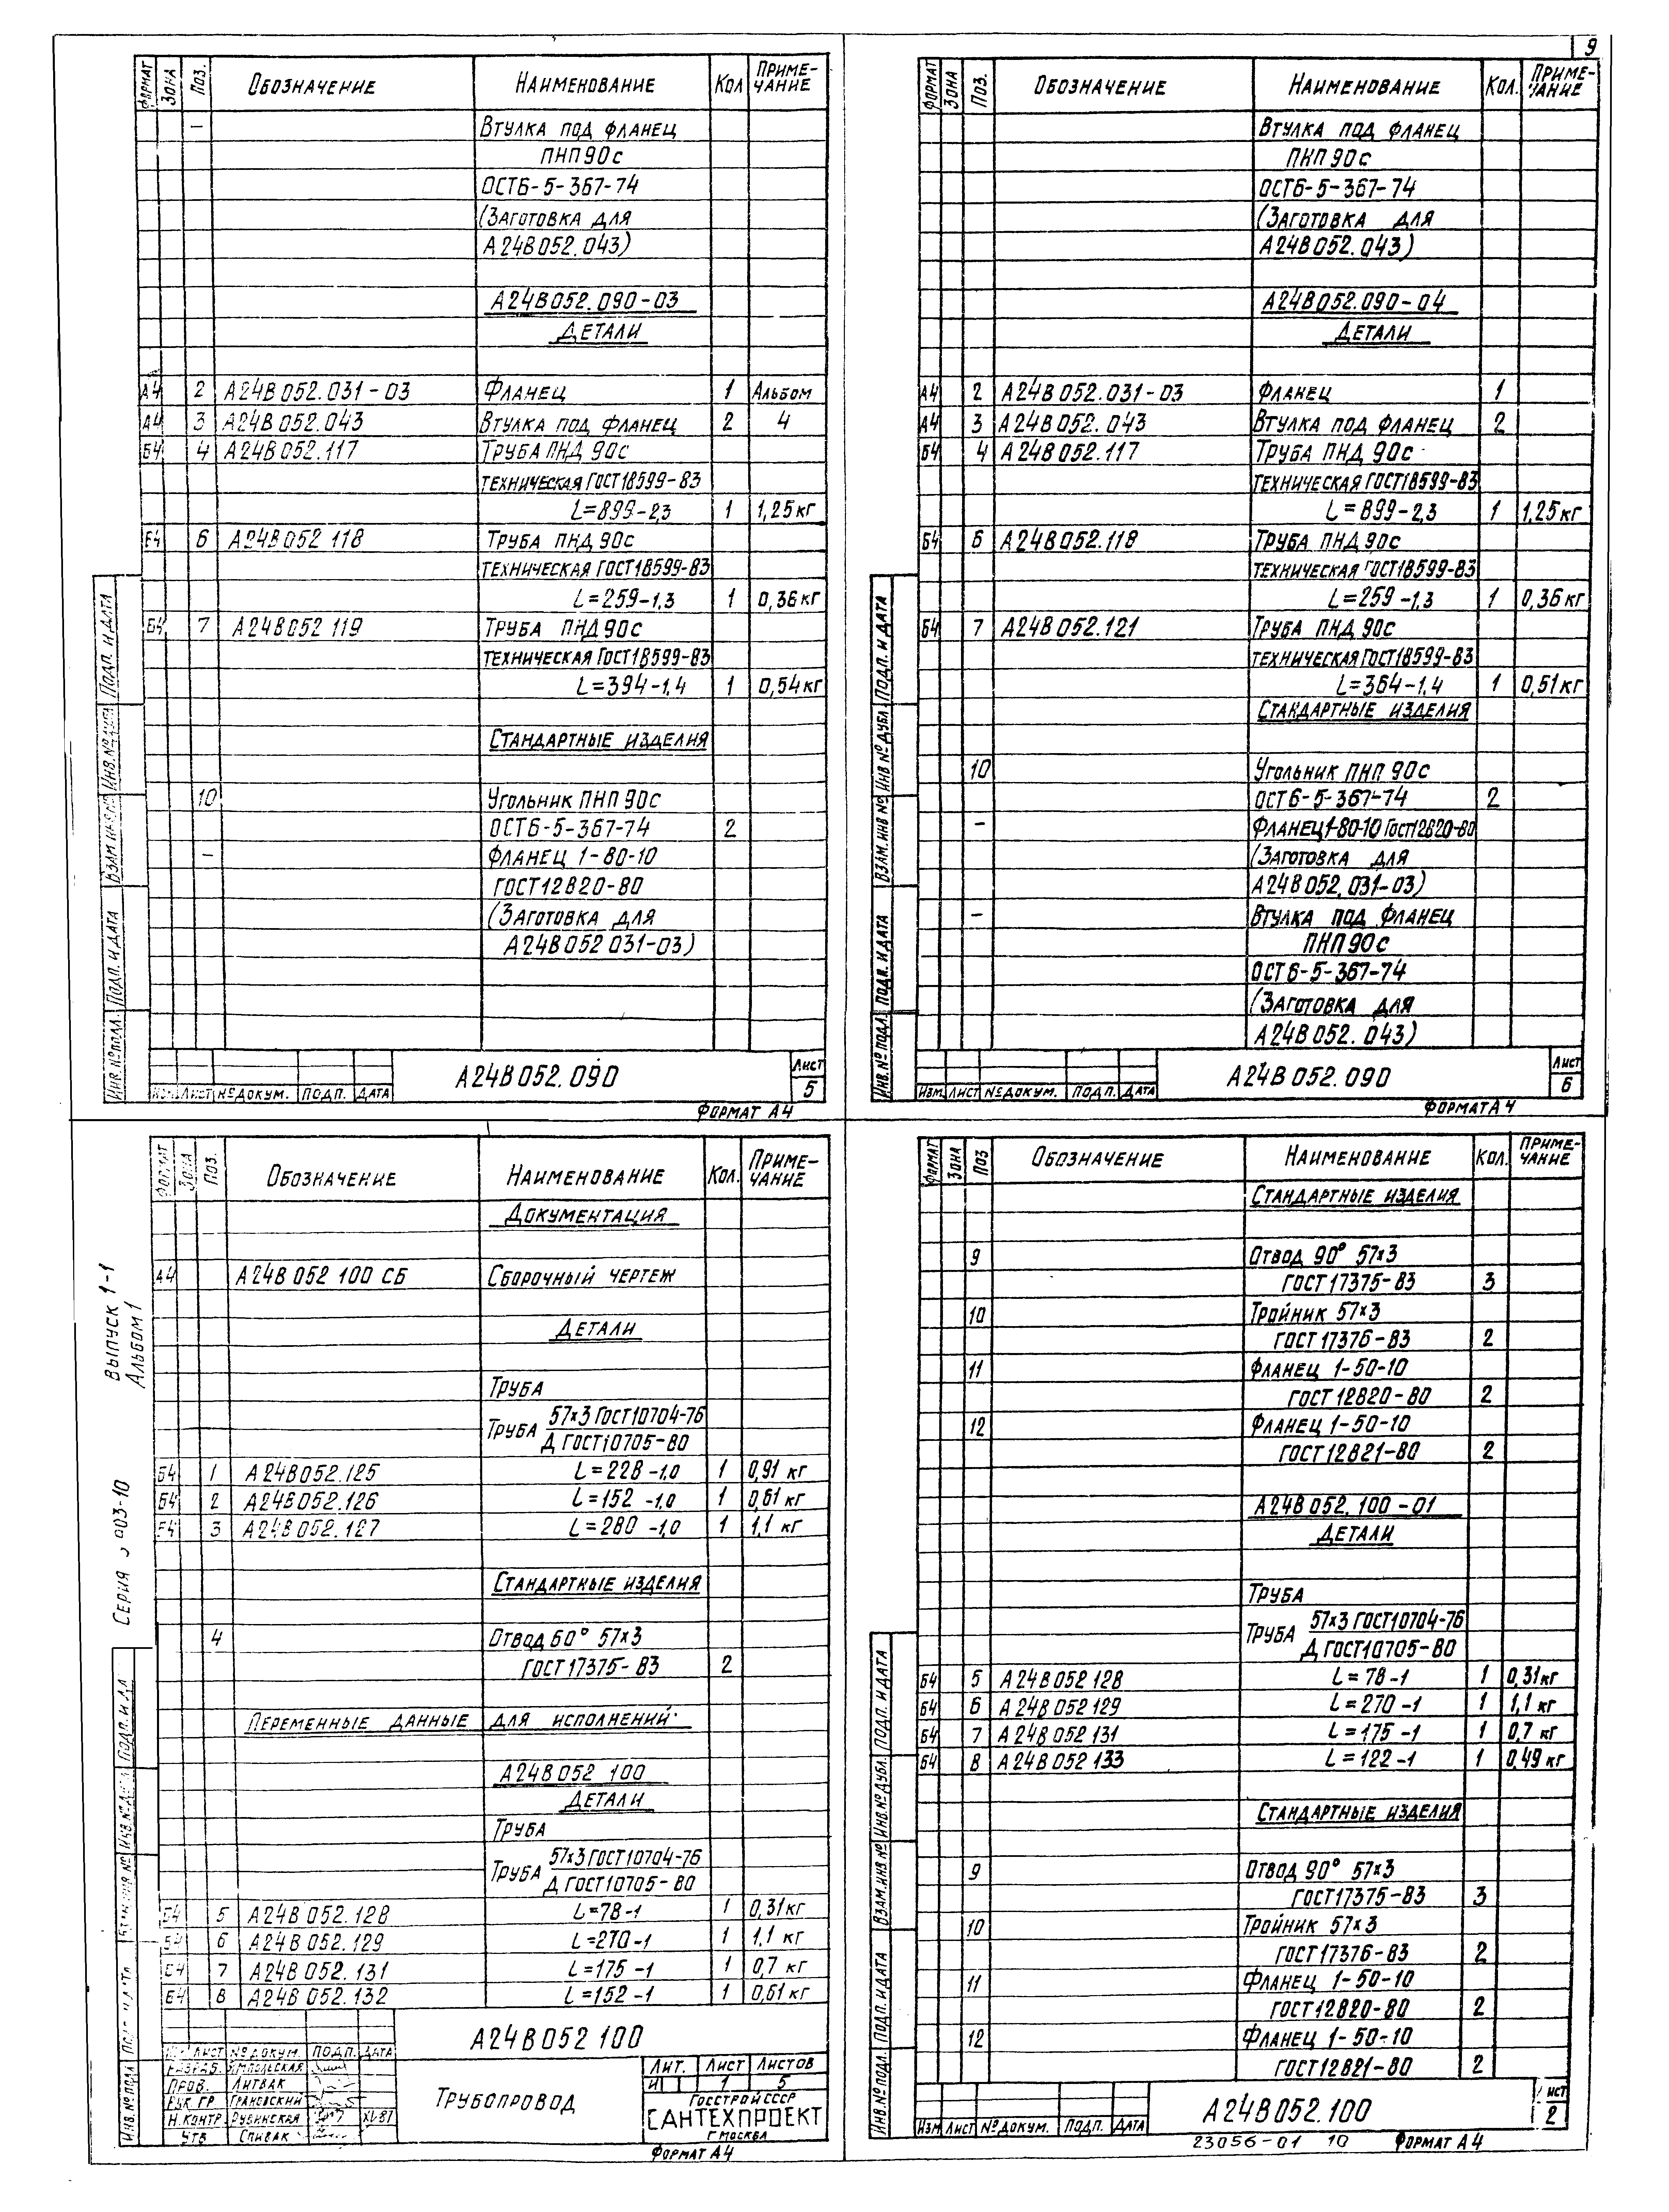 9
ФОРМАТ ЗОНА ПОЗ. ОБОЗНАЧЕНИЕ НАИМЕНОВАНИЕ КОЛ ПРИМЕ-ЧАНИЕ
– ВТУЛКА ПОД ФЛАНЕЦ
ПНП 90с
ОСТ6-5-367-74
(ЗАГОТОВКА ДЛЯ
А24В052.043)
А24В052.090-03
ДЕТАЛИ
А4 2 А24В052.031-03 ФЛАНЕЦ 1 АЛЬБОМ
А4 3 А24В052.043 ВТУЛКА ПОД ФЛАНЕЦ 2 4
Б4 4 А24В052.117 ТРУБА ПНД 90с
ТЕХНИЧЕСКАЯ ГОСТ18599-83
L=899-2,3 1 1,25кг
Б4 6 А24В052 118 ТРУБА ПНД 90с
ТЕХНИЧЕСКАЯ ГОСТ18599-83
L=259-1,3 1 0,36кг
Б4 7 А24В052 119 ТРУБА ПНД 90с
ТЕХНИЧЕСКАЯ ГОСТ18599-83
L=394-1,4 1 0,54кг
СТАНДАРТНЫЕ ИЗДЕЛИЯ
10 УГОЛЬНИК ПНП 90с
ОСТ6-5-367-74 2
– ФЛАНЕЦ 1-80-10
ГОСТ12820-80
(ЗАГОТОВКА ДЛЯ
А24В052 031-03)
ИНВ.№ПОДЛ. ПОДП. И ДАТА ВЗАМ ИНВ № ИНВ.№ДУБЛ ПОДП. И ДАТА
ИЗМ ЛИСТ №ДОКУМ. ПОДП. ДАТА
А24В052.090
ЛИСТ
5
ФОРМАТ А4
ФОРМАТ ЗОНА ПОЗ. ОБОЗНАЧЕНИЕ НАИМЕНОВАНИЕ КОЛ. ПРИМЕ-ЧАНИЕ
ВТУЛКА ПОД ФЛАНЕЦ
ПНП 90с
ОСТ6-5-367-74
(ЗАГОТОВКА ДЛЯ
А24В052.043)
А24В052.090-04
ДЕТАЛИ
А4 2 А24В052.031-03 ФЛАНЕЦ 1
А4 3 А24В052.043 ВТУЛКА ПОД ФЛАНЕЦ 2
Б4 4 А24В052.117 ТРУБА ПНД 90с
ТЕХНИЧЕСКАЯ ГОСТ18599-83
L=899-2,3 1 1,25кг
Б4 6 А24В052.118 ТРУБА ПНД 90с
ТЕХНИЧЕСКАЯ ГОСТ18599-83
L=259-1,3 1 0,36кг
Б4 7 А24В052.121 ТРУБА ПНД 90с
ТЕХНИЧЕСКАЯ ГОСТ18599-83
L=364-1,4 1 0,51кг
СТАНДАРТНЫЕ ИЗДЕЛИЯ
10 УГОЛЬНИК ПНП 90с
ОСТ6-5-367-74 2
– ФЛАНЕЦ1-80-10 ГОСТ12820-80
(ЗАГОТОВКА ДЛЯ
А24В052.031-03)
– ВТУЛКА ПОД ФЛАНЕЦ
ПНП90с
ОСТ6-5-367-74
(ЗАГОТОВКА ДЛЯ
А24В052.043)
ИНВ.№ПОДЛ. ПОДП. И ДАТА ВЗАМ.ИНВ № ИНВ №ДУБЛ ПОДП. И ДАТА
ИЗМ ЛИСТ №ДОКУМ. ПОДП. ДАТА
А24В052.090
ЛИСТ
6
ФОРМАТ А4
ВЫПУСК 1-1
АЛЬБОМ1
СЕРИЯ 903-10
ФОРМАТ ЗОНА ПОЗ. ОБОЗНАЧЕНИЕ НАИМЕНОВАНИЕ КОЛ. ПРИМЕ-ЧАНИЕ
ДОКУМЕНТАЦИЯ
А4 А24В052 100 СБ СБОРОЧНЫЙ ЧЕРТЕЖ
ДЕТАЛИ
ТРУБА
ТРУБА 57х3 ГОСТ10704-76
Д ГОСТ10705-80
Б4 1 А24В052.125 L=228-1,0 1 0,91 кг
Б4 2 А24В052.126 L=152-1,0 1 0,61 кг
Б4 3 А24В052.127 L=280-1,0 1 1,1 кг
СТАНДАРТНЫЕ ИЗДЕЛИЯ
4 ОТВОД 60° 57х3
ГОСТ17375-83 2
ПЕРЕМЕННЫЕ ДАННЫЕ ДЛЯ ИСПОЛНЕНИЙ:
А24В052 100
ДЕТАЛИ
ТРУБА
ТРУБА 57х3 ГОСТ10704-76
Д ГОСТ10705-80
Б4 5 А24В052.128 L=78-1 1 0,31кг
Б4 6 А24В052.129 L=270-1 1 1,1 кг
Б4 7 А24В052.131 L=175-1 1 0,7 кг
Б4 8 А24В052.132 L=152-1 1 0,61кг
ЛИСТ №ДОКУМ. ПОДП. ДАТА
РАЗРАБ. ЯМПОЛЬСКАЯ
ПРОВ. ЛИТВАК
РУК.ГР ГРАНОВСКИЙ
Н.КОНТР РУБИНСКАЯ XI-87
УТВ СПИВАК
А24В052 100
ТРУБОПРОВОД
ЛИТ. ЛИСТ ЛИСТОВ
И 1 5
ГОССТРОЙ СССР
САНТЕХПРОЕКТ
Г МОСКВА
ФОРМАТ А4
ФОРМАТ ЗОНА ПОЗ ОБОЗНАЧЕНИЕ НАИМЕНОВАНИЕ КОЛ. ПРИМЕ-ЧАНИЕ
СТАНДАРТНЫЕ ИЗДЕЛИЯ
9 ОТВОД 90° 57х3
ГОСТ17375-83 3
10 ТРОЙНИК 57х3
ГОСТ17376-83 2
11 ФЛАНЕЦ 1-50-10
ГОСТ12820-80 2
12 ФЛАНЕЦ 1-50-10
ГОСТ12821-80 2
А24В052.100-01
ДЕТАЛИ
ТРУБА
ТРУБА 57х3 ГОСТ10704-76
Д ГОСТ10705-80
Б4 5 А24В052 128 L=78-1 1 0,31кг
Б4 6 А24В052 129 L=270-1 1 1,1 кг
Б4 7 А24В052 131 L=175-1 1 0,7 кг
Б4 8 А24В052 133 L=122-1 1 0,49кг
СТАНДАРТНЫЕ ИЗДЕЛИЯ
9 ОТВОД 90° 57х3
ГОСТ17375-83 3
10 ТРОЙНИК 57х3
ГОСТ17376-83 2
11 ФЛАНЕЦ 1-50-10
ГОСТ12820-80 2
12 ФЛАНЕЦ 1-50-10
ГОСТ12821-80 2
ИНВ.№ПОДЛ. ПОДП. И ДАТА ВЗАМ.ИНВ № ИНВ.№ДУБЛ. ПОДП. И ДАТА
ИЗМ ЛИСТ №ДОКУМ. ПОДП. ДАТА
А24В052.100
ЛИСТ
2
23056-01 10 ФОРМАТ А4